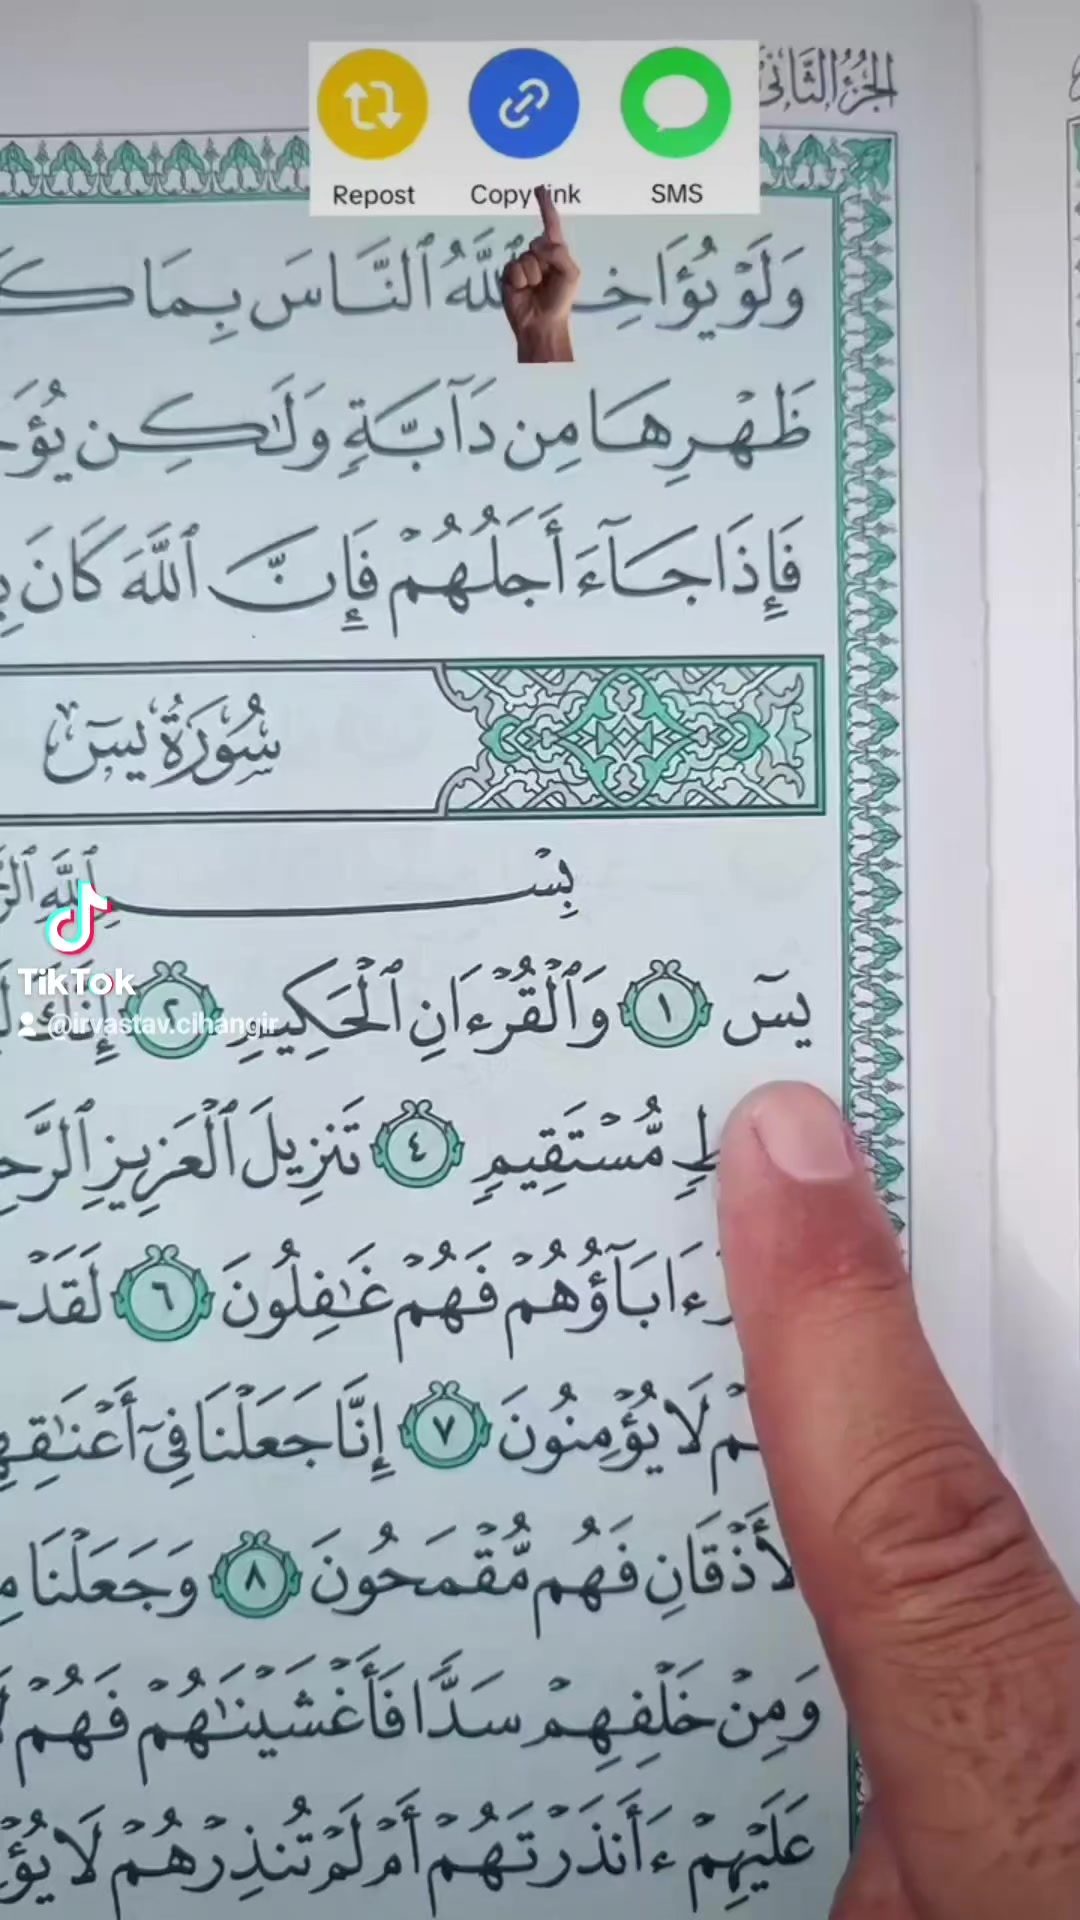 الجزء الثاني
Repost Copy link SMS
وَلَوْ يُؤَاخِذُ ٱللَّهُ ٱلنَّاسَ بِمَا
ظَهْرِهَا مِن دَآبَّةٍ وَلَٰكِن
فَإِذَا جَآءَ أَجَلُهُمْ فَإِنَّ ٱللَّهَ كَانَ
سُورَةُ يسٓ
بِسْمِ ٱللَّهِ
يسٓ ١ وَٱلْقُرْءَانِ ٱلْحَكِيمِ ٢ إِنَّكَ
TikTok
@irvastav.cihangir
مُّسْتَقِيمٍ ٤ تَنزِيلَ ٱلْعَزِيزِ
ءَابَآؤُهُمْ فَهُمْ غَٰفِلُونَ ٦ لَقَدْ
لَا يُؤْمِنُونَ ٧ إِنَّا جَعَلْنَا فِىٓ
ٱلْأَذْقَانِ فَهُم مُّقْمَحُونَ ٨ وَجَعَلْنَا
وَمِنْ خَلْفِهِمْ سَدًّا فَأَغْشَيْنَٰهُمْ فَهُمْ
عَلَيْهِمْ ءَأَنذَرْتَهُمْ أَمْ لَمْ تُنذِرْهُمْ لَا